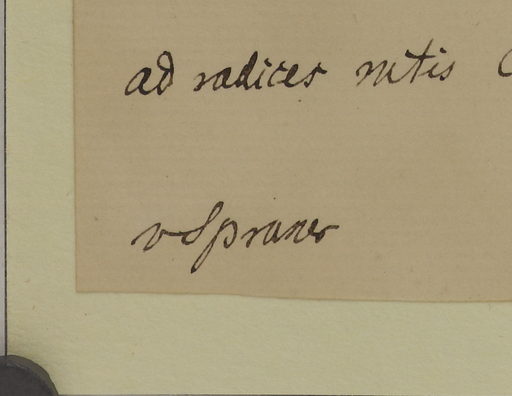 ad radices mtis C
v Spruner